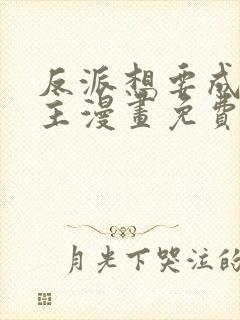 反派想要成
主漫畫免費
月光下哭泣的